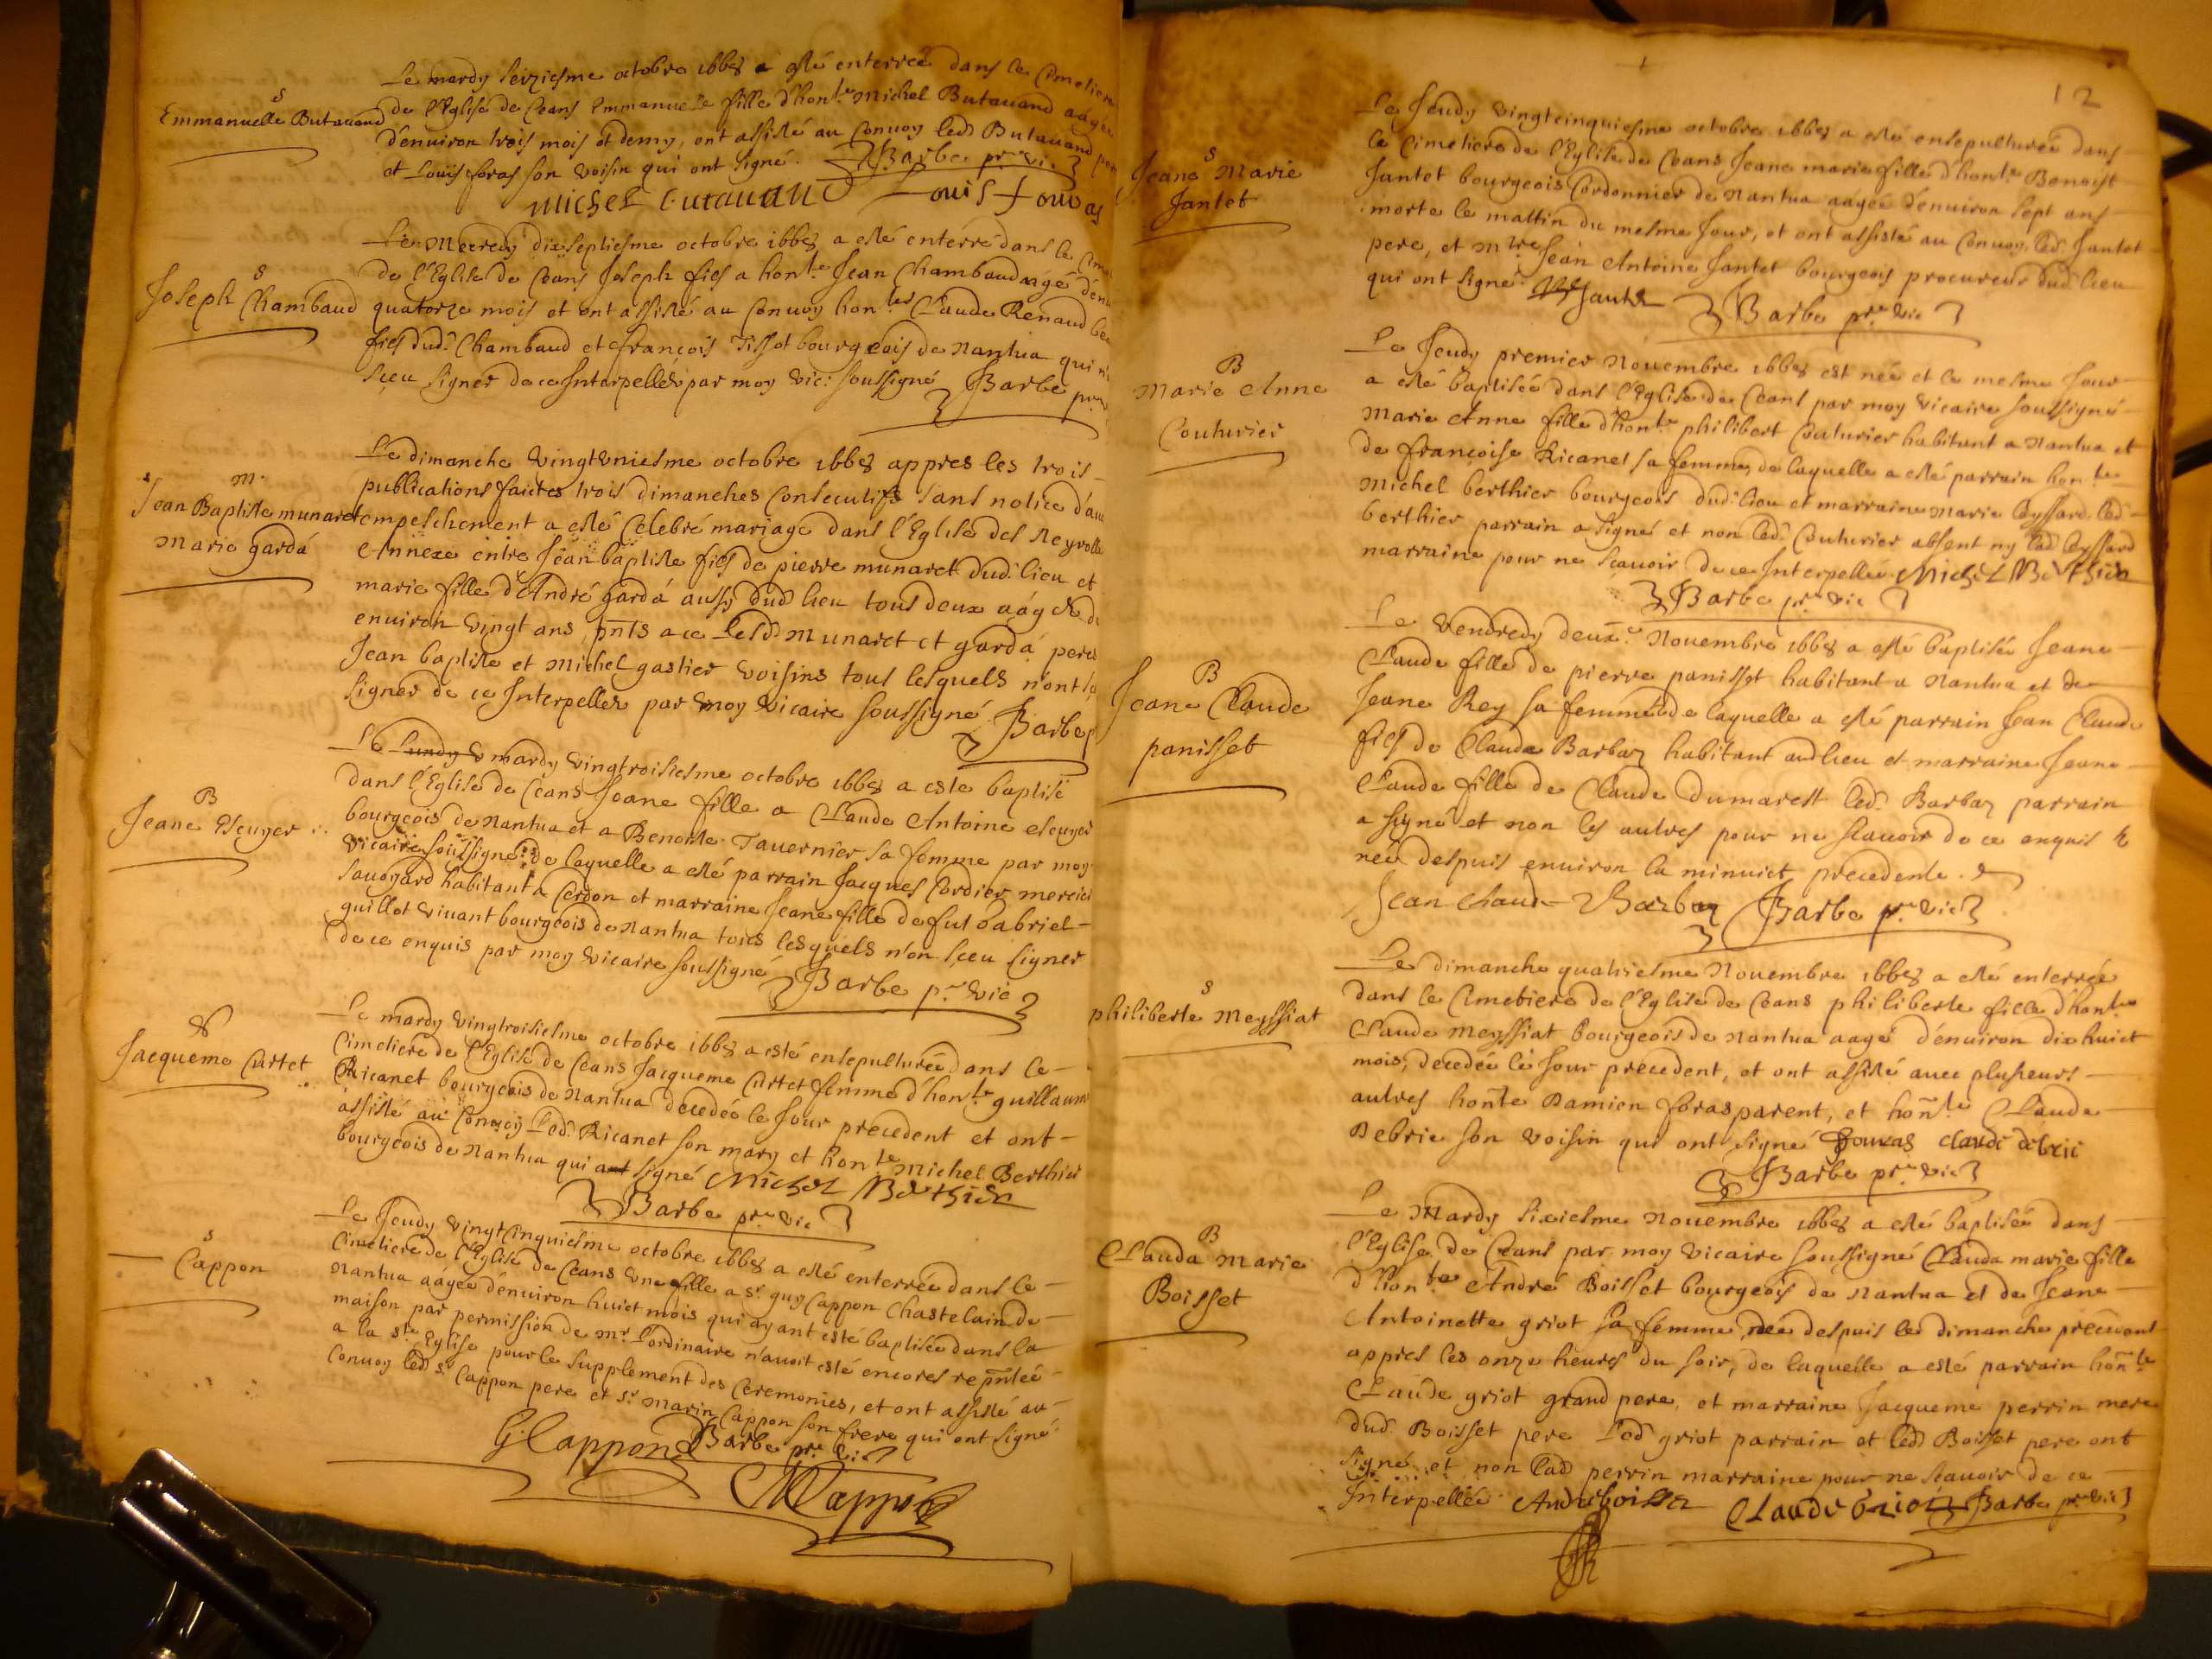 Le mardy seiziesme octobre 1668 a esté enterreé dans le Cimetiere
S
Emmanuelle Butauand
de l'Eglise de Ceans Emmanuelle fille d'hon.te Michel Butauand aagée
d'enuiron trois mois et demy, ont assisté au Conuoy led. Butauand pere
et Louis foras son voisin qui ont signé. Barbe pr. vic.
Michel butauand Louis Fouras
Le Mecredy dixseptiesme octobre 1668 a esté enterré dans le Cime
S
Joseph Chambaud
de l'Eglise de Ceans Joseph fils a hon.te Jean Chambaud aagé d'enu
quatorze mois et ont assisté au Conuoy hon.tes Claude Renaud be
fils dud. Chambaud et françois Tissot bourgeois de Nantua qui n'
sçeu signer de ce Interpellés par moy vic: soussigné Barbe pr
Le dimanche vingtvniesme octobre 1668 appres les trois
m.
Jean Baptiste munaret
Marie gardá
publications faictes trois dimanches Consecutifs sans notice d'au
empeschement a esté Celebré mariage dans l'Eglise des Neyrolle
Annexe entre Jean baptiste fils de pierre munaret dud. lieu et
marie fille d'André gardá aussy dud. lieu tous deux aágés d
enuiron vingt ans, pnts a ce Lesd. Munaret et gardá peres
Jean baptiste et Michel gastier voisins tous lesquels n'ont sç
signer de ce Interpellés par moy vicaire soussigné Barbe p
Le Lundy mardy vingtroisiesme octobre 1668 a este baptisé
B
Jeane Escuyer
dans l'Eglise de Céans Jeane fille a Claude Antoine escuyer
bourgeois de Nantua et a Benoite Tauernier sa femme par moy
vicaire soussigné: de laquelle a esté parrain Jacques Cordier mercier
sauoyard habitant a Cerdon et marraine Jeane fille de fut Gabriel
guillot viuant bourgeois de Nantua tous lesquels n'on sçeu signer
de ce enquis par moy vicaire soussigné Barbe pr. vic
Le mardy vingtroisiesme octobre 1668 a esté ensepulturée dans le
S
Jacqueme Curtet
Cimetiere de l'Eglise de Ceans Jacqueme Curtet femme d'hon.te guillaume
Ricanet bourgeois de Nantua decedée le Jour precedent et ont
assisté au Conuoy Led. Ricanet son mary et hon.te Michel Berthier
bourgeois de Nantua qui ont signé Michel Berthier
Barbe pr. vic
Le Jeudy vingtCinquiesme octobre 1668 a esté enterrée dans le
S
Cappon
Cimetiere de l'Eglise de Ceans vne fille a sr. guy Cappon Chastelain de
Nantua aágée d'enuiron huict mois qui ayant esté baptisée dans la
maison par permission de mr. l'ordinaire n'auoit esté encores repntée
a la ste. Eglise pour le supplement des Ceremonies, et ont assisté au
Conuoy led. sr. Cappon pere et sr. Marin Cappon son frere qui ont signé
G. Cappon Barbe pr. vic
MCappon
12
Le Jeudy vingtcinquiesme octobre 1668 a esté ensepulturée dans
S
Jeane Marie
Jantet
le Cimetiere de l'Eglise de Ceans Jeane marie fille d'hon.te Benoist
Jantet bourgeois Cordonnier de Nantua aágée d'enuiron sept ans
morte le mattin du mesme Jour, et ont assisté au Conuoy, led. Jantet
pere, et Mtre Jean Antoine Jantet bourgeois procureur dud. lieu
qui ont signé Jantet Barbe pr. vic
Le Jeudy premier Nouembre 1668 est née et le mesme Jour
B
Marie Anne
Couturier
a esté baptisée dans l'Eglise de Ceans par moy vicaire soussigné
Marie Anne fille d'hon.te philibert Couturier habitant a Nantua et
de françoise Ricanet sa femme, de laquelle a esté parrain hon.te
Michel berthier bourgeois dud. lieu et marraine Marie leyssard, led.
berthier parrain a signé et non led. Couturier absent ny lad. leyssard
marraine pour ne sçauoir de ce Interpellée Michel Berthier
Barbe pr. vic
Le vendredy deux.e Nouembre 1668 a esté baptisée Jeane
B
Jeane Claude
panisset
Claude fille de pierre panisset habitant a Nantua et de
Jeane Rey sa femme de laquelle a esté parrain Jean Claude
fils de Claude Barbaz habitant aud. lieu et marraine Jeane
Claude fille de Claude dumarest led. Barbaz parrain
a signé et non les autres pour ne sçauoir de ce enquis
née despuis enuiron la minuict precedente.
Jean claude Barbaz Barbe pr. vic
Le dimanche quatriesme Nouembre 1668 a esté enterrée
S
philiberte Meyssiat
dans le Cimetiere de l'Eglise de Ceans philiberte fille d'hon.te
Claude Meyssiat bourgeois de Nantua aagé d'enuiron dixhuict
mois, decedée le Jour precedent, et ont assisté auec plusieurs
autres hon.te Damien foras parent, et hon.te Claude
Debrie son voisin qui ont signé Fouras claude debrie
Barbe pr. vic
Le Mardy sixiesme Nouembre 1668 a esté baptisée dans
B
Clauda Marie
Boisset
l'Eglise de Ceans par moy vicaire soussigné Clauda marie fille
d'hon.te André Boisset bourgeois de Nantua et de Jeane
Antoinette griot sa femme, née despuis le dimanche precedent
appres les onze heures du soir, de laquelle a esté parrain hon.te
Claude griot grand pere, et marraine Jacqueme perrin mere
dud. Boisset pere Led. griot parrain et led. Boisset pere ont
signé, et non lad. perrin marraine pour ne sçauoir de ce
Interpellée André boisset Claude Griot Barbe pr. vic